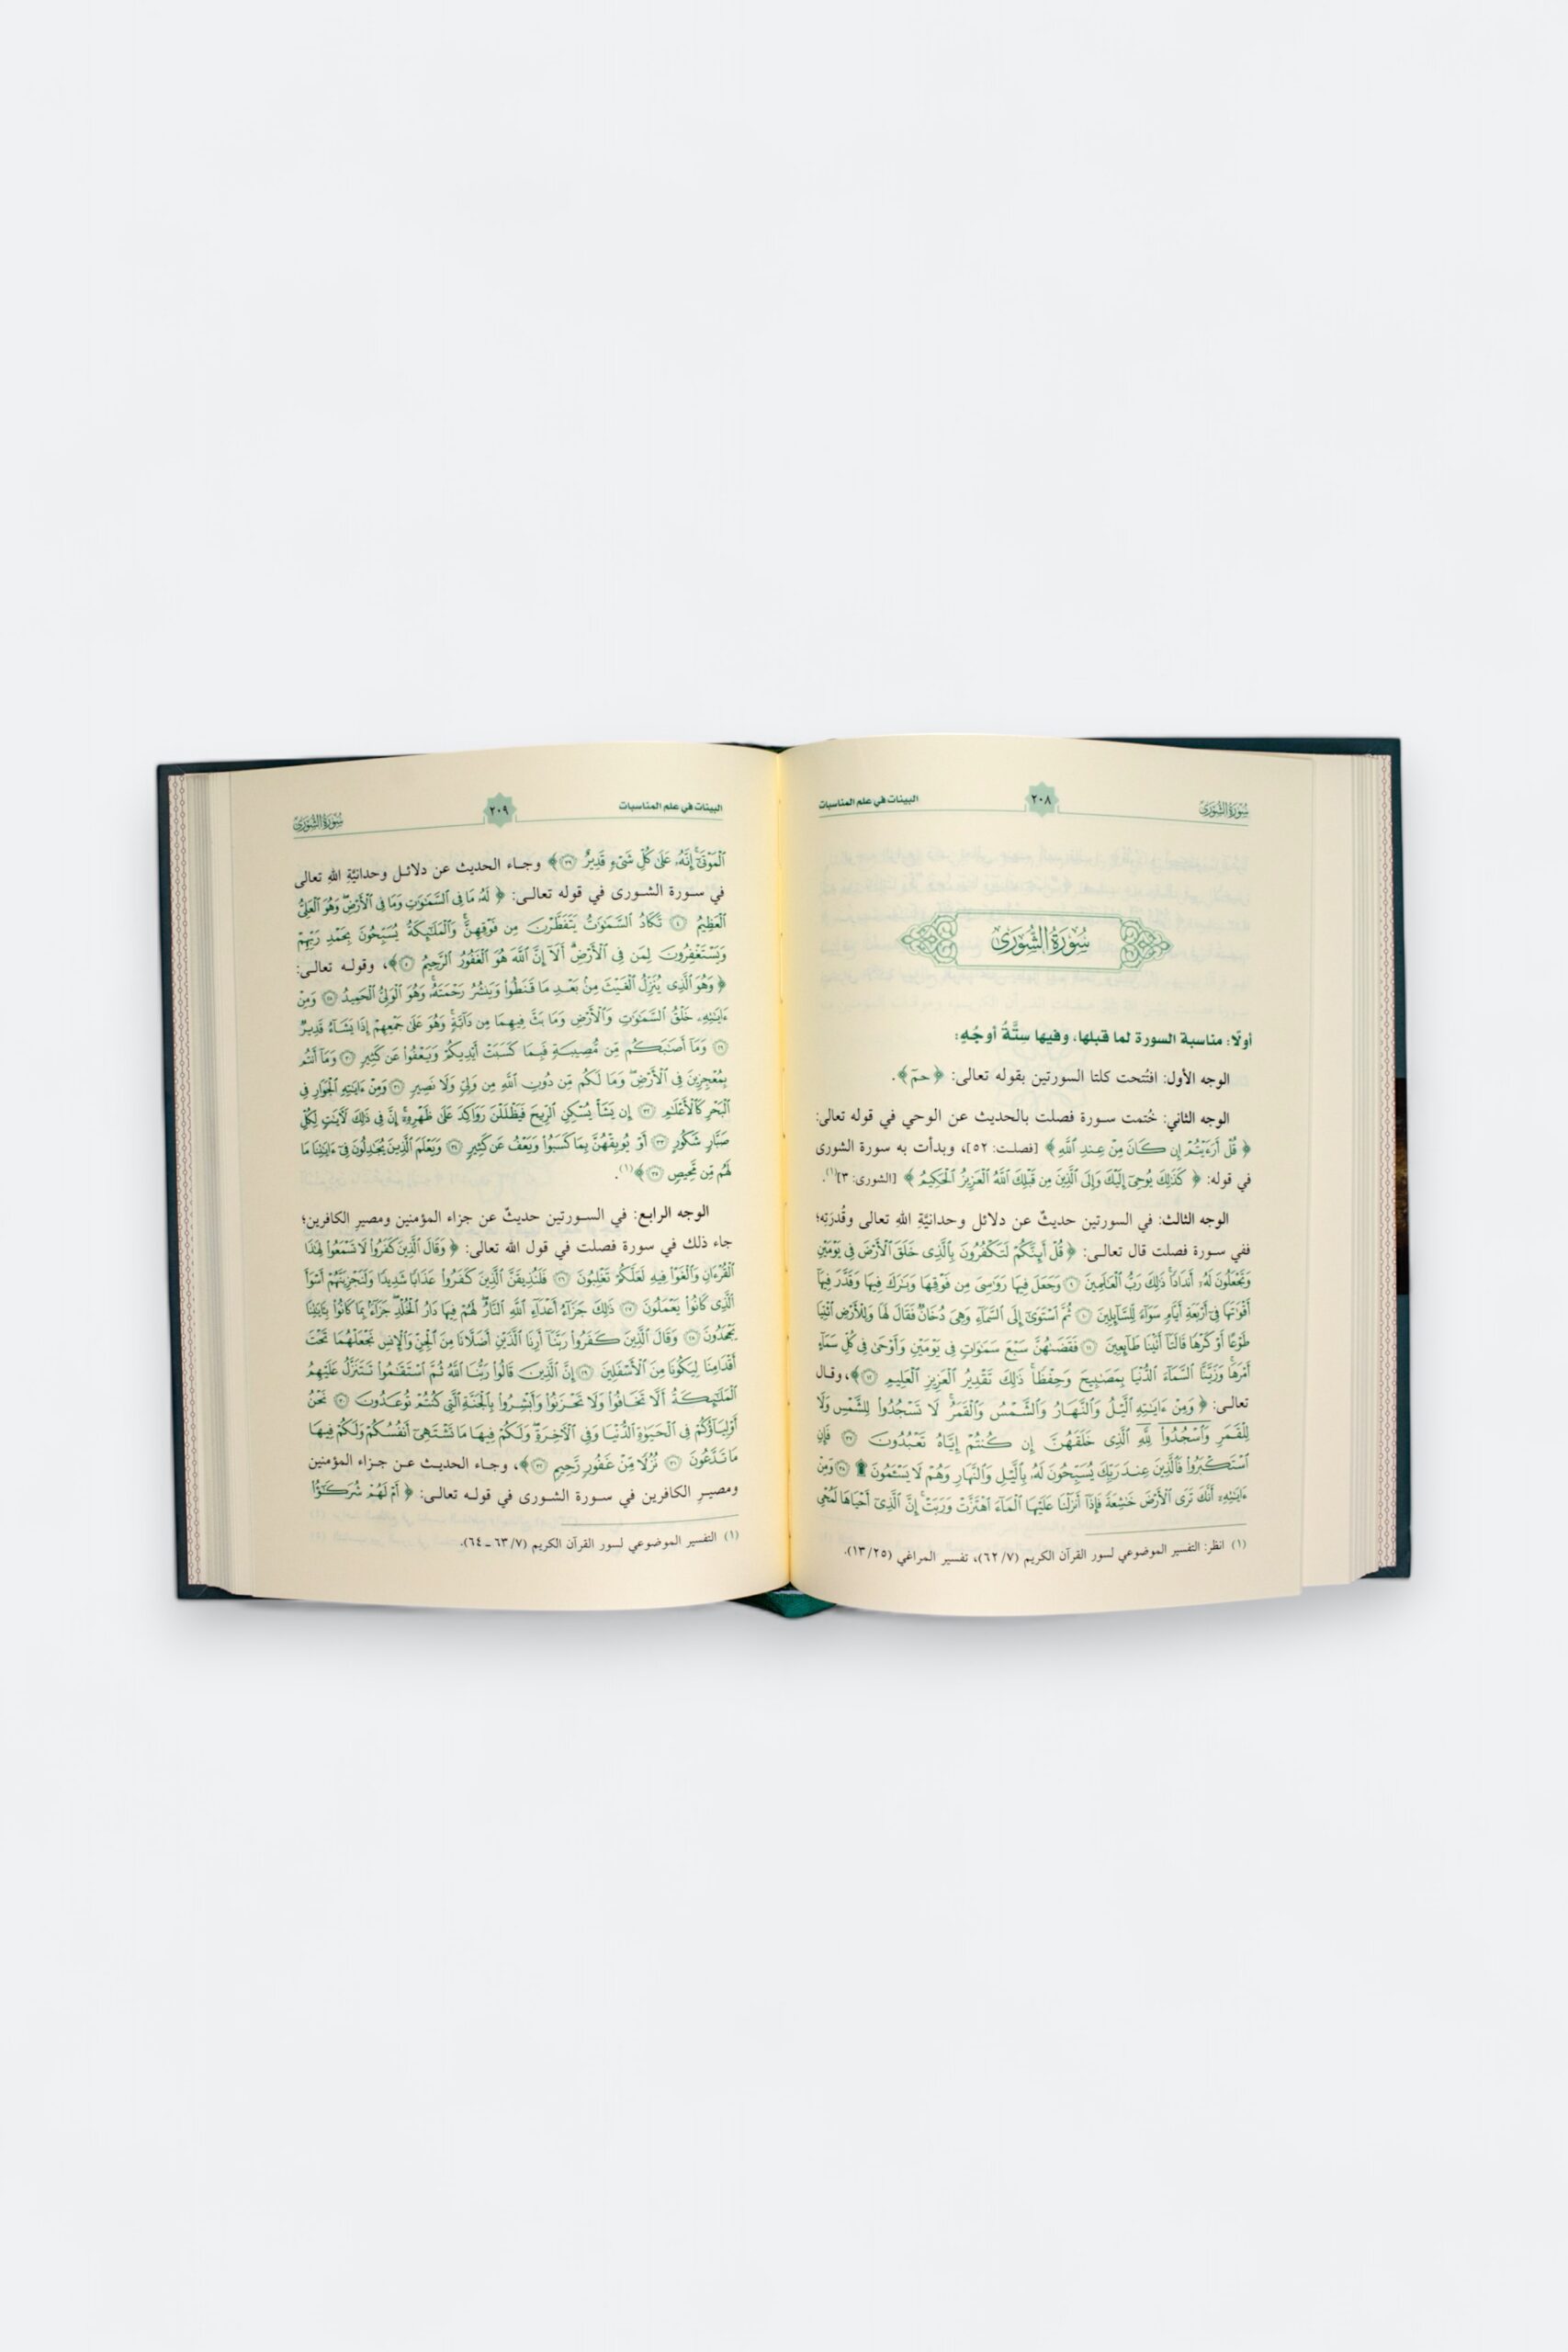 سُورَةُ الشُّورَىٰ
٢٠٨
البينات في علم المناسبات
سُورَةُ الشُّورَىٰ
أولًا: مناسبة السورة لما قبلها، وفيها سِتَّةُ أوجُهٍ:
الوجه الأول: افتُتحت كلتا السورتين بقوله تعالى: ﴿حمٓ﴾.
الوجه الثاني: خُتمت سورة فصلت بالحديث عن الوحي في قوله تعالى:
﴿قُلۡ أَرَءَيۡتُمۡ إِن كَانَ مِنۡ عِندِ ٱللَّهِ﴾ [فصلت: ٥٢]، وبدأت به سورة الشورى
في قوله: ﴿كَذَٰلِكَ يُوحِيٓ إِلَيۡكَ وَإِلَى ٱلَّذِينَ مِن قَبۡلِكَ ٱللَّهُ ٱلۡعَزِيزُ ٱلۡحَكِيمُ﴾ [الشورى: ٣](١).
الوجه الثالث: في السورتين حديثٌ عن دلائل وحدانيَّةِ اللهِ تعالى وقُدرَتِه؛
ففي سورة فصلت قال تعالى: ﴿قُلۡ أَئِنَّكُمۡ لَتَكۡفُرُونَ بِٱلَّذِي خَلَقَ ٱلۡأَرۡضَ فِي يَوۡمَيۡنِ
وَتَجۡعَلُونَ لَهُۥٓ أَندَادٗاۚ ذَٰلِكَ رَبُّ ٱلۡعَٰلَمِينَ ٩ وَجَعَلَ فِيهَا رَوَٰسِيَ مِن فَوۡقِهَا وَبَٰرَكَ فِيهَا وَقَدَّرَ فِيهَآ
أَقۡوَٰتَهَا فِيٓ أَرۡبَعَةِ أَيَّامٖ سَوَآءٗ لِّلسَّآئِلِينَ ١٠ ثُمَّ ٱسۡتَوَىٰٓ إِلَى ٱلسَّمَآءِ وَهِيَ دُخَانٞ فَقَالَ لَهَا وَلِلۡأَرۡضِ ٱئۡتِيَا
طَوۡعًا أَوۡ كَرۡهٗا قَالَتَآ أَتَيۡنَا طَآئِعِينَ ١١ فَقَضَىٰهُنَّ سَبۡعَ سَمَٰوَاتٖ فِي يَوۡمَيۡنِ وَأَوۡحَىٰ فِي كُلِّ سَمَآءٍ
أَمۡرَهَاۚ وَزَيَّنَّا ٱلسَّمَآءَ ٱلدُّنۡيَا بِمَصَٰبِيحَ وَحِفۡظٗاۚ ذَٰلِكَ تَقۡدِيرُ ٱلۡعَزِيزِ ٱلۡعَلِيمِ ١٢﴾، وقال
تعالى: ﴿وَمِنۡ ءَايَٰتِهِ ٱلَّيۡلُ وَٱلنَّهَارُ وَٱلشَّمۡسُ وَٱلۡقَمَرُۚ لَا تَسۡجُدُواْ لِلشَّمۡسِ وَلَا
لِلۡقَمَرِ وَٱسۡجُدُواْۤ لِلَّهِۤ ٱلَّذِي خَلَقَهُنَّ إِن كُنتُمۡ إِيَّاهُ تَعۡبُدُونَ ٣٧ فَإِنِ
ٱسۡتَكۡبَرُواْ فَٱلَّذِينَ عِندَ رَبِّكَ يُسَبِّحُونَ لَهُۥ بِٱلَّيۡلِ وَٱلنَّهَارِ وَهُمۡ لَا يَسۡـَٔمُونَ۩ ٣٨ وَمِنۡ
ءَايَٰتِهِۦٓ أَنَّكَ تَرَى ٱلۡأَرۡضَ خَٰشِعَةٗ فَإِذَآ أَنزَلۡنَا عَلَيۡهَا ٱلۡمَآءَ ٱهۡتَزَّتۡ وَرَبَتۡۚ إِنَّ ٱلَّذِيٓ أَحۡيَاهَا لَمُحۡيِ
(١) انظر: التفسير الموضوعي لسور القرآن الكريم (٧/ ٦٢)، تفسير المراغي (٢٥/ ١٣).
البينات في علم المناسبات
٢٠٩
سُورَةُ الشُّورَىٰ
ٱلۡمَوۡتَىٰٓۚ إِنَّهُۥ عَلَىٰ كُلِّ شَيۡءٖ قَدِيرٌ ٣٩﴾ وجاء الحديث عن دلائل وحدانيَّةِ اللهِ تعالى
في سورة الشورى في قوله تعالى: ﴿لَهُۥ مَا فِي ٱلسَّمَٰوَٰتِ وَمَا فِي ٱلۡأَرۡضِۖ وَهُوَ ٱلۡعَلِيُّ
ٱلۡعَظِيمُ ٤ تَكَادُ ٱلسَّمَٰوَٰتُ يَتَفَطَّرۡنَ مِن فَوۡقِهِنَّۚ وَٱلۡمَلَٰٓئِكَةُ يُسَبِّحُونَ بِحَمۡدِ رَبِّهِمۡ
وَيَسۡتَغۡفِرُونَ لِمَن فِي ٱلۡأَرۡضِۗ أَلَآ إِنَّ ٱللَّهَ هُوَ ٱلۡغَفُورُ ٱلرَّحِيمُ ٥﴾، وقوله تعالى:
﴿وَهُوَ ٱلَّذِي يُنَزِّلُ ٱلۡغَيۡثَ مِنۢ بَعۡدِ مَا قَنَطُواْ وَيَنشُرُ رَحۡمَتَهُۥۚ وَهُوَ ٱلۡوَلِيُّ ٱلۡحَمِيدُ ٢٨ وَمِنۡ
ءَايَٰتِهِۦ خَلۡقُ ٱلسَّمَٰوَٰتِ وَٱلۡأَرۡضِ وَمَا بَثَّ فِيهِمَا مِن دَآبَّةٖۚ وَهُوَ عَلَىٰ جَمۡعِهِمۡ إِذَا يَشَآءُ قَدِيرٞ
٢٩ وَمَآ أَصَٰبَكُم مِّن مُّصِيبَةٖ فَبِمَا كَسَبَتۡ أَيۡدِيكُمۡ وَيَعۡفُواْ عَن كَثِيرٖ ٣٠ وَمَآ أَنتُم
بِمُعۡجِزِينَ فِي ٱلۡأَرۡضِۖ وَمَا لَكُم مِّن دُونِ ٱللَّهِ مِن وَلِيّٖ وَلَا نَصِيرٖ ٣١ وَمِنۡ ءَايَٰتِهِ ٱلۡجَوَارِ فِي
ٱلۡبَحۡرِ كَٱلۡأَعۡلَٰمِ ٣٢ إِن يَشَأۡ يُسۡكِنِ ٱلرِّيحَ فَيَظۡلَلۡنَ رَوَاكِدَ عَلَىٰ ظَهۡرِهِۦٓۚ إِنَّ فِي ذَٰلِكَ لَأٓيَٰتٖ لِّكُلِّ
صَبَّارٖ شَكُورٍ ٣٣ أَوۡ يُوبِقۡهُنَّ بِمَا كَسَبُواْ وَيَعۡفُ عَن كَثِيرٖ ٣٤ وَيَعۡلَمَ ٱلَّذِينَ يُجَٰدِلُونَ فِيٓ ءَايَٰتِنَا مَا
لَهُم مِّن مَّحِيصٖ ٣٥﴾(١).
الوجه الرابع: في السورتين حديثٌ عن جزاء المؤمنين ومصيرِ الكافرين؛
جاء ذلك في سورة فصلت في قول الله تعالى: ﴿وَقَالَ ٱلَّذِينَ كَفَرُواْ لَا تَسۡمَعُواْ لِهَٰذَا
ٱلۡقُرۡءَانِ وَٱلۡغَوۡاْ فِيهِ لَعَلَّكُمۡ تَغۡلِبُونَ ٢٦ فَلَنُذِيقَنَّ ٱلَّذِينَ كَفَرُواْ عَذَابٗا شَدِيدٗا وَلَنَجۡزِيَنَّهُمۡ أَسۡوَأَ
ٱلَّذِي كَانُواْ يَعۡمَلُونَ ٢٧ ذَٰلِكَ جَزَآءُ أَعۡدَآءِ ٱللَّهِ ٱلنَّارُۖ لَهُمۡ فِيهَا دَارُ ٱلۡخُلۡدِ جَزَآءَۢ بِمَا كَانُواْ بِـَٔايَٰتِنَا
يَجۡحَدُونَ ٢٨ وَقَالَ ٱلَّذِينَ كَفَرُواْ رَبَّنَآ أَرِنَا ٱلَّذَيۡنِ أَضَلَّانَا مِنَ ٱلۡجِنِّ وَٱلۡإِنسِ نَجۡعَلۡهُمَا تَحۡتَ
أَقۡدَامِنَا لِيَكُونَا مِنَ ٱلۡأَسۡفَلِينَ ٢٩ إِنَّ ٱلَّذِينَ قَالُواْ رَبُّنَا ٱللَّهُ ثُمَّ ٱسۡتَقَٰمُواْ تَتَنَزَّلُ عَلَيۡهِمُ
ٱلۡمَلَٰٓئِكَةُ أَلَّا تَخَافُواْ وَلَا تَحۡزَنُواْ وَأَبۡشِرُواْ بِٱلۡجَنَّةِ ٱلَّتِي كُنتُمۡ تُوعَدُونَ ٣٠ نَحۡنُ
أَوۡلِيَآؤُكُمۡ فِي ٱلۡحَيَوٰةِ ٱلدُّنۡيَا وَفِي ٱلۡأٓخِرَةِۖ وَلَكُمۡ فِيهَا مَا تَشۡتَهِيٓ أَنفُسُكُمۡ وَلَكُمۡ فِيهَا
مَا تَدَّعُونَ ٣١ نُزُلٗا مِّنۡ غَفُورٖ رَّحِيمٖ ٣٢﴾، وجاء الحديث عن جزاء المؤمنين
ومصير الكافرين في سورة الشورى في قوله تعالى: ﴿أَمۡ لَهُمۡ شُرَكَٰٓؤُاْ
(١) التفسير الموضوعي لسور القرآن الكريم (٧/ ٦٣ ـ ٦٤).